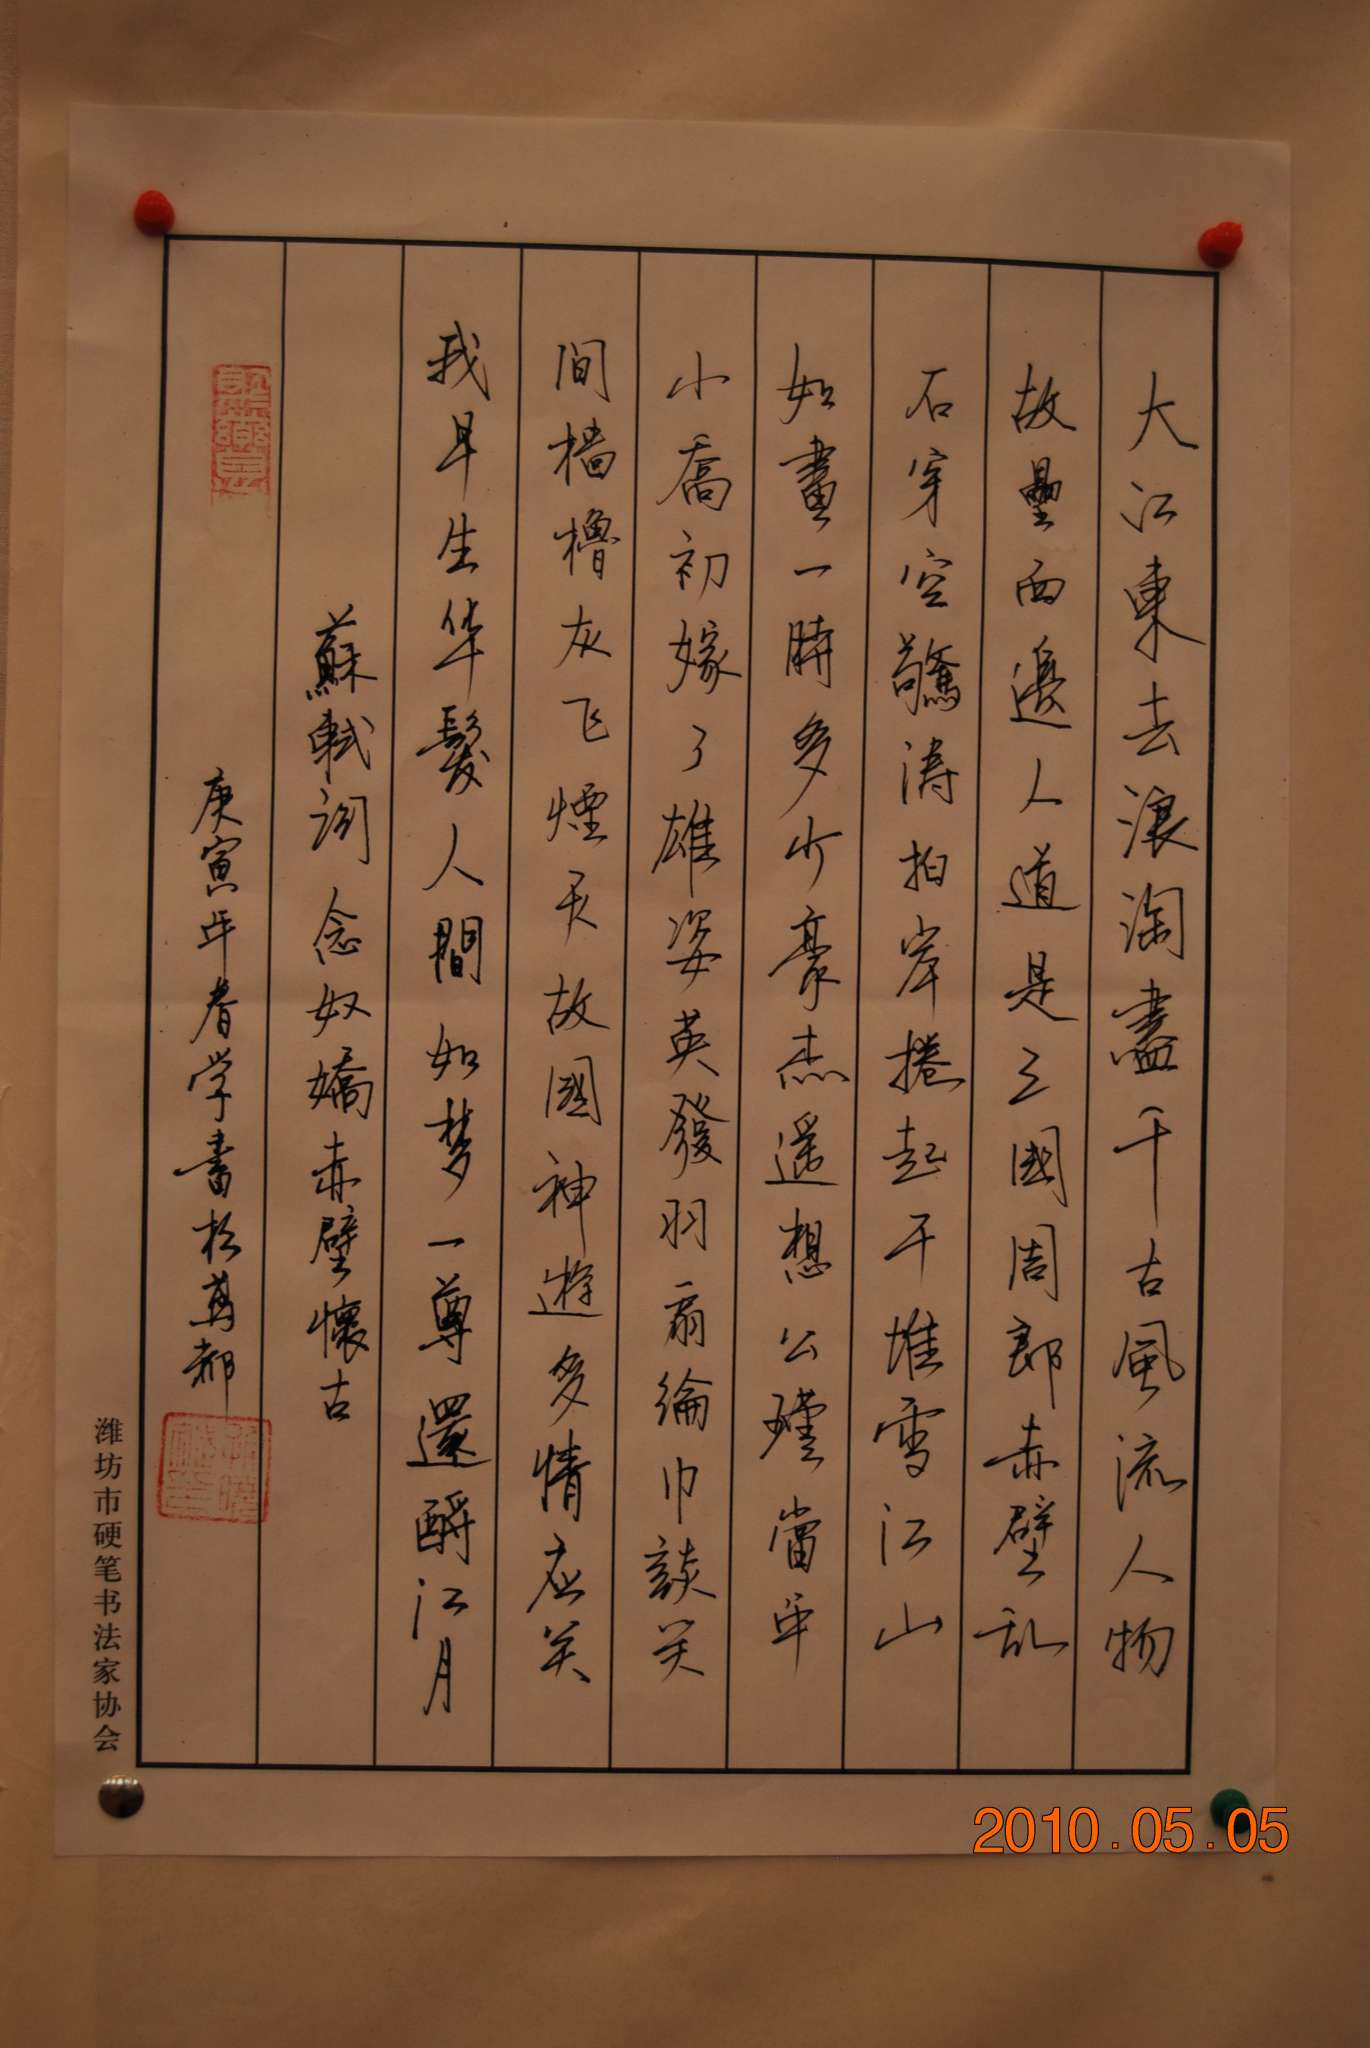 大江東去浪淘盡千古風流人物
故壘西邊人道是三國周郎赤壁乱
石穿空驚涛拍岸捲起千堆雪江山
如畫一時多少豪杰遥想公瑾當年
小喬初嫁了雄姿英發羽扇綸巾談笑
间樯橹灰飞煙灭故國神遊多情应笑
我早生华髮人間如梦一尊還酹江月
蘇軾词念奴嬌赤壁懷古
庚寅年春学書於鳶都
潍坊市硬笔书法家协会
2010.05.05